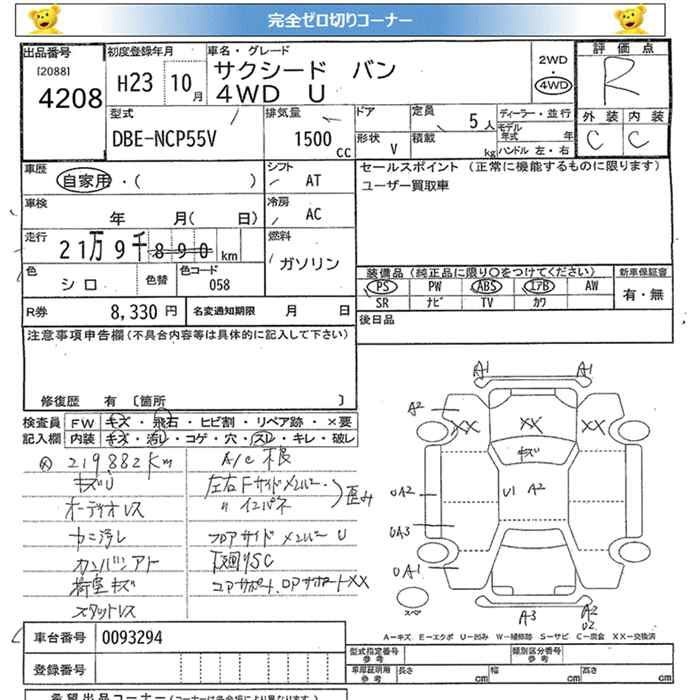 完全ゼロ切りコーナー
出品番号
[2088]
4208
初度登録年月
H23 10月
車名・グレード
サクシード バン
4WD U
2WD
4WD
評価点
R
外装 内装
C C
型式
DBE-NCP55V
排気量
1500 cc
ドア
定員
5人
形状 V
積載
kg
ディーラー・並行
モデル年式 年
ハンドル 左・右
車歴
自家用・( )
シフト
AT
車検
年 月( 日)
冷房
AC
走行
21万9千890 km
燃料
ガソリン
色
シロ
色替
色コード
058
R券 8,330 円
名変通知期限 月 日
セールスポイント (正常に機能するものに限ります)
ユーザー買取車
装備品 (純正品に限り○をつけてください)
PS PW ABS エアB AW
SR ナビ TV カワ
新車保証書
有・無
後日品
注意事項申告欄 (不具合内容等は具体的に記入して下さい)
修復歴 有 〔箇所 〕
検査員記入欄
FW キズ・飛石・ヒビ割・リペア跡・×要
内装 キズ・汚レ・コゲ・穴・スレ・キレ・破レ
219,882Km
キズU
オーディオレス
カンバンアト
荷室キズ
スタットレス
A/C 不良
左右Fサイドメンバー・
〃インパネ
歪み
フロアサイドメンバーU
下廻りSC
コアサポート
XX
A1 A1
A2
XX XX XX
キズ
U1 A2
UA2
UA3
UA1
スペア
A3 A2
U2
A－キズ E－エクボ U－凹み W－補修跡 S－サビ C－腐食 XX－交換済
車台番号 0093294
登録番号
型式指定番号
参考
類別区分番号
参考
車庫証明用
参考
長さ cm
幅 cm
高さ cm
希望出品コーナー